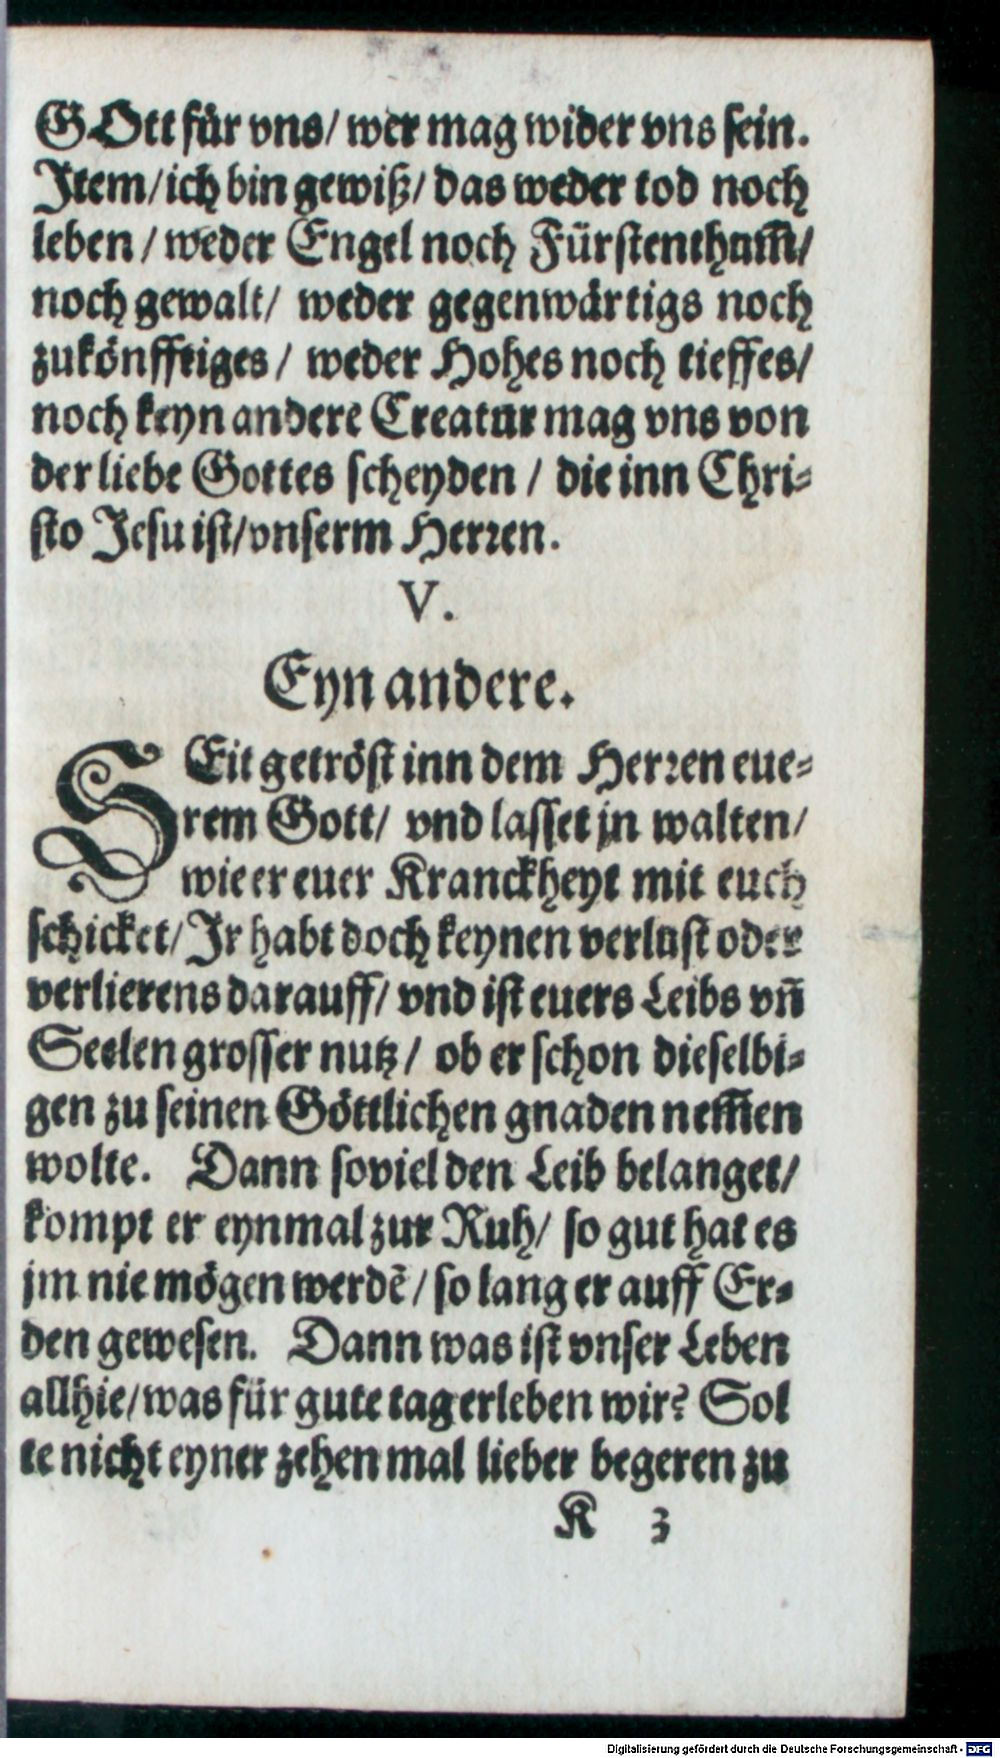 GOtt für vns/ wer mag wider vns sein.
Item/ich bin gewiß/ das weder tod noch
leben / weder Engel noch Fürstenthum̃/
noch gewalt/ weder gegenwärtigs noch
zukönfftiges / weder Hohes noch tieffes/
noch keyn andere Creatur mag vns von
der liebe Gottes scheyden / die inn Chri-
sto Jesu ist/vnserm Herren.
V.
Eyn andere.
SEit getröst inn dem Herren eue-
rem Gott/ vnd lasset jn walten/
wie er euer Kranckheyt mit euch
schicket/ Ir habt doch keynen verlust oder
verlierens darauff/ vnd ist euers Leibs vñ
Seelen grosser nutz / ob er schon dieselbi-
gen zu seinen Göttlichen gnaden nem̃en
wolte. Dann soviel den Leib belanget/
kompt er eynmal zur Ruh/ so gut hat es
jm nie mögen werdẽ / so lang er auff Er-
den gewesen. Dann was ist vnser Leben
allhie/was für gute tag erleben wir? Sol
te nicht eyner zehen mal lieber begeren zu
K 3
Digitalisierung gefördert durch die Deutsche Forschungsgemeinschaft - DFG